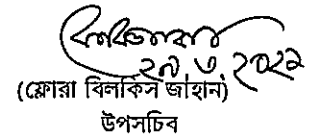 ২৯.৩.২০২২
(ফ্লোরা বিলকিস জাহান)
উপসচিব